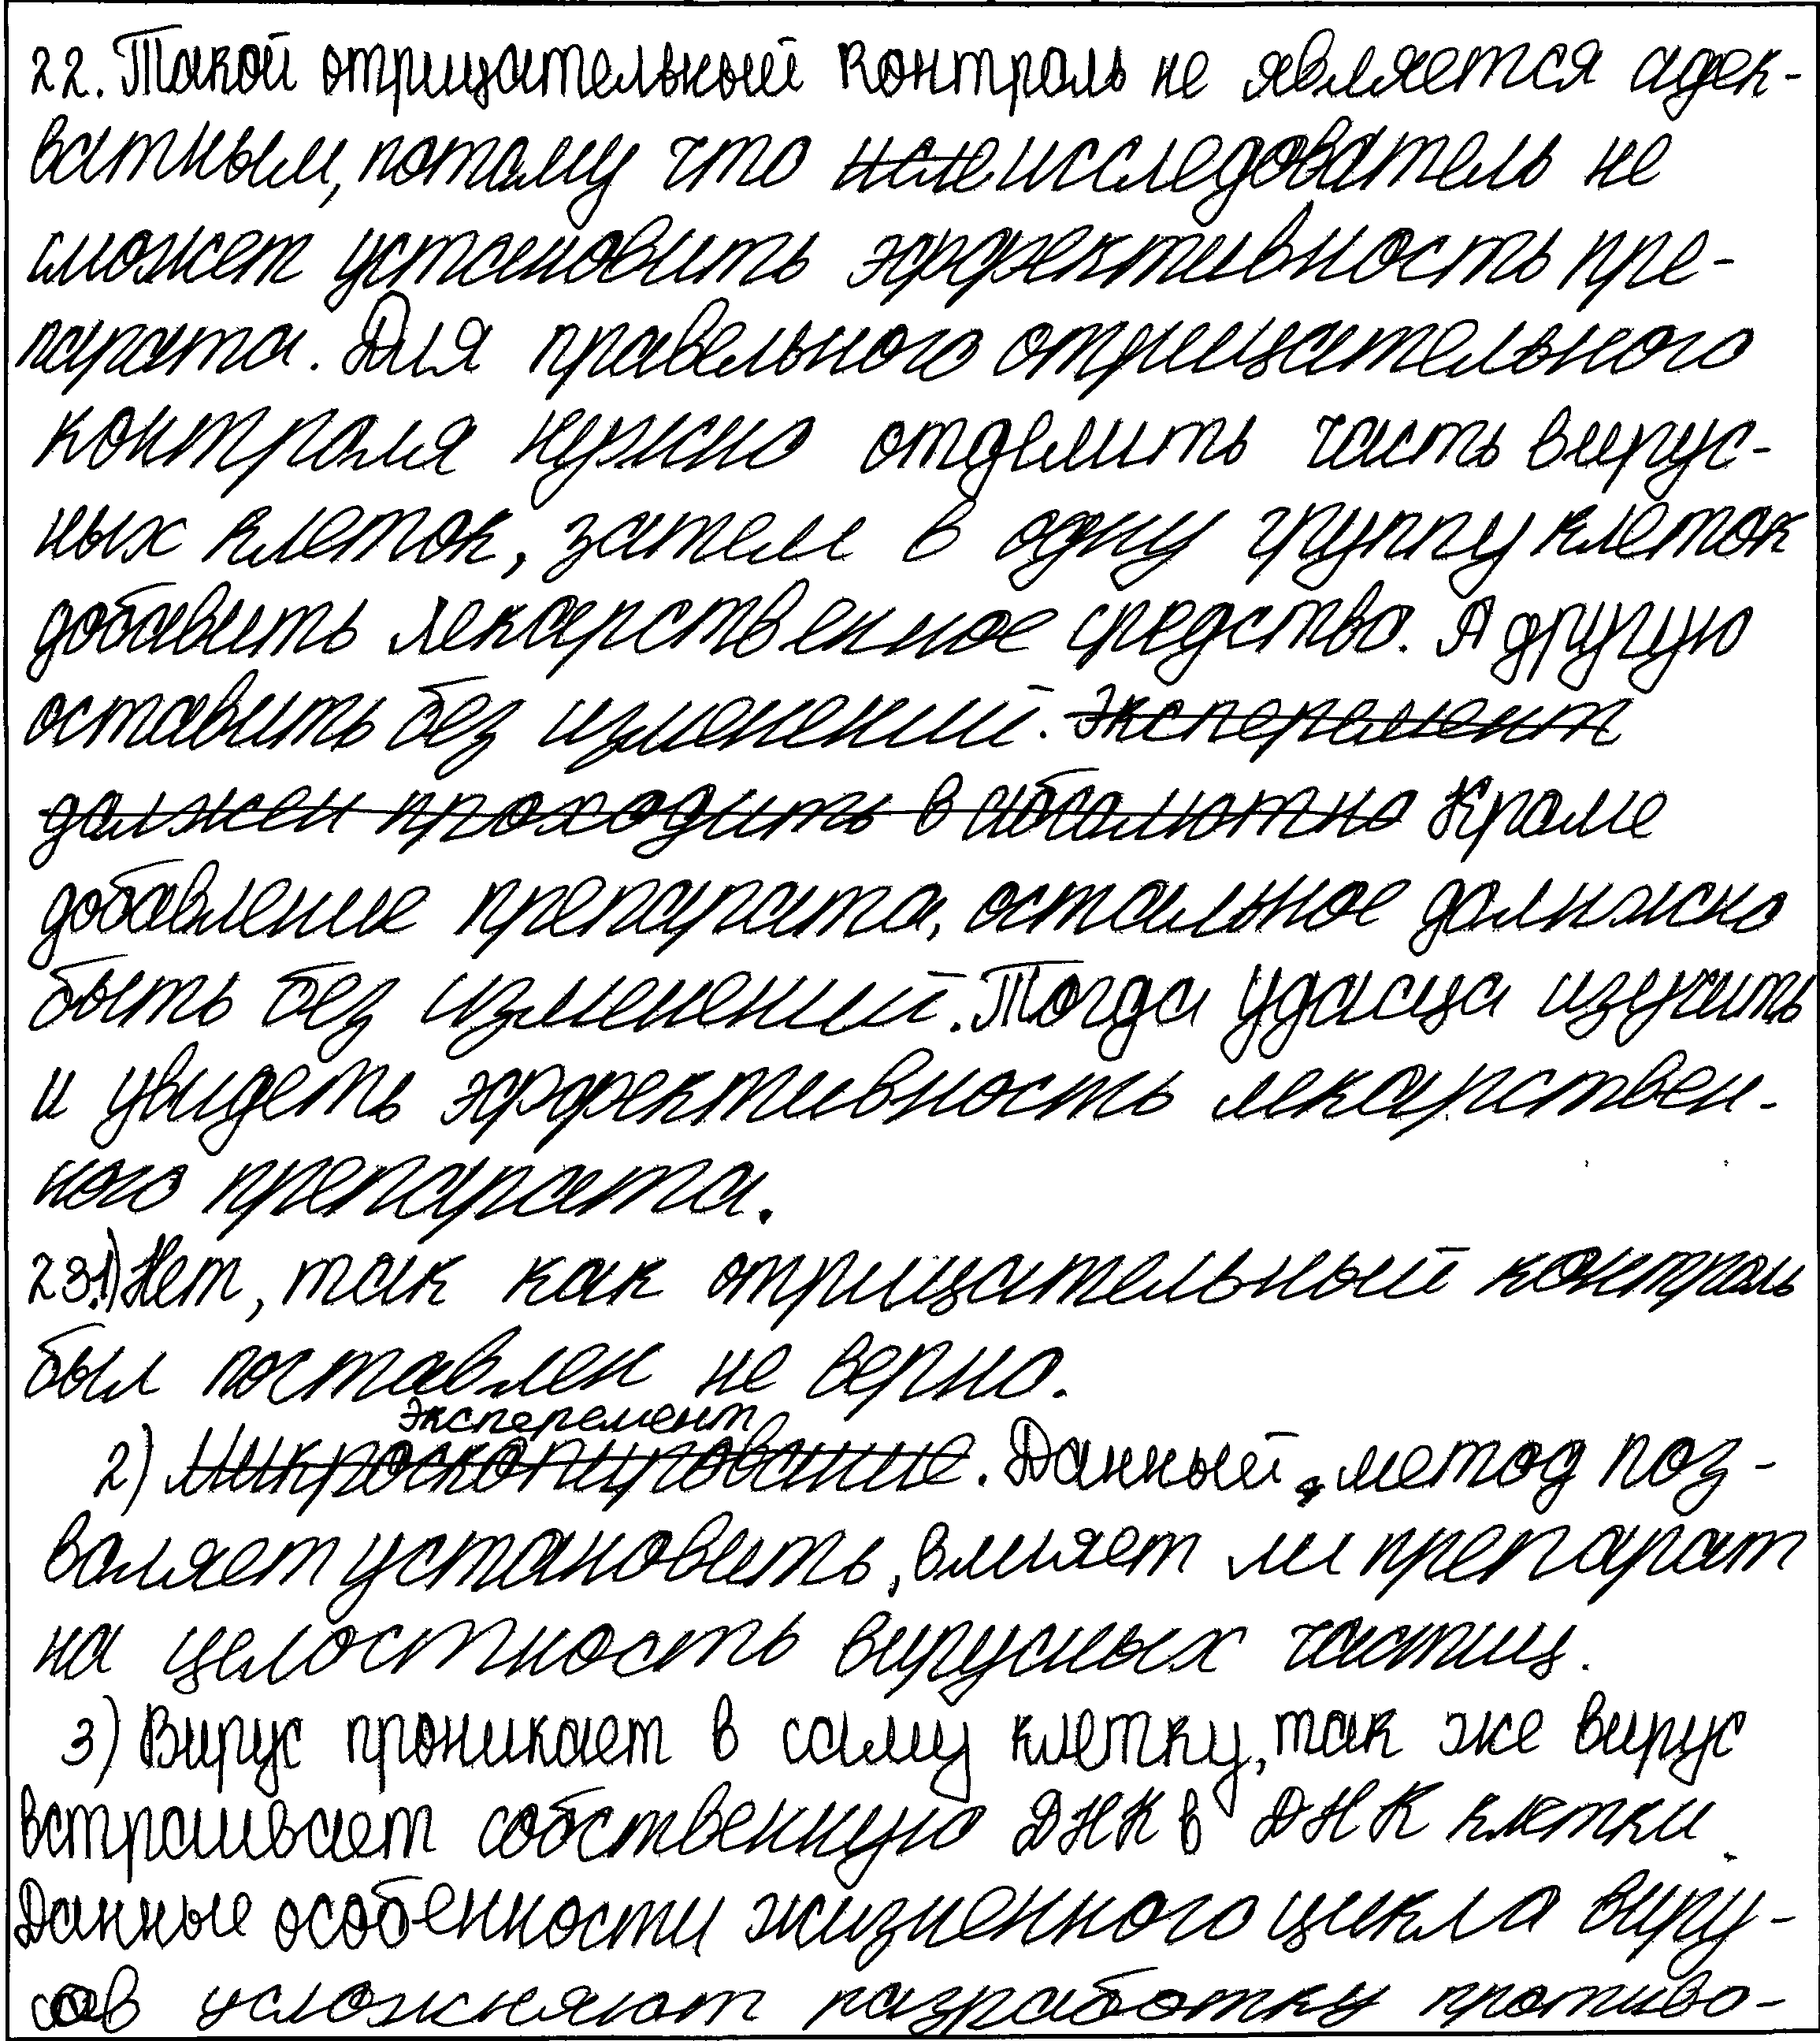 22. Такой отрицательный контроль не является адек-
ватным, потому что ~~исле~~ исследователь не
сможет установить эффективность пре-
парата. Для правельного отрицательного
контроля нужно отделить часть вирус-
ных клеток, затем в одну группу клеток
добавить лекарственное средство. А другую
оставить без изменений. ~~Эксперемент~~
~~должен проходить в абсалютно~~ Кроме
добавление препарата, остальное должно
быть без изменений. Тогда удасца изучить
и увидеть эффективность лекарствен-
ного препарата.
23.1) Нет, так как отрицательный контроль
был поставлен не верно.
Эксперемент
2) ~~Микроскопирование~~. Данный метод поз-
воляет установить, влияет ли препарат
на целостность вирусных частиц.
3) Вирус проникает в саму клетку, так же вирус
встраивает собственную ДНК в ДНК клетки.
Данные особенности жизненного цикла виру-
сов усложняют разработку противо-